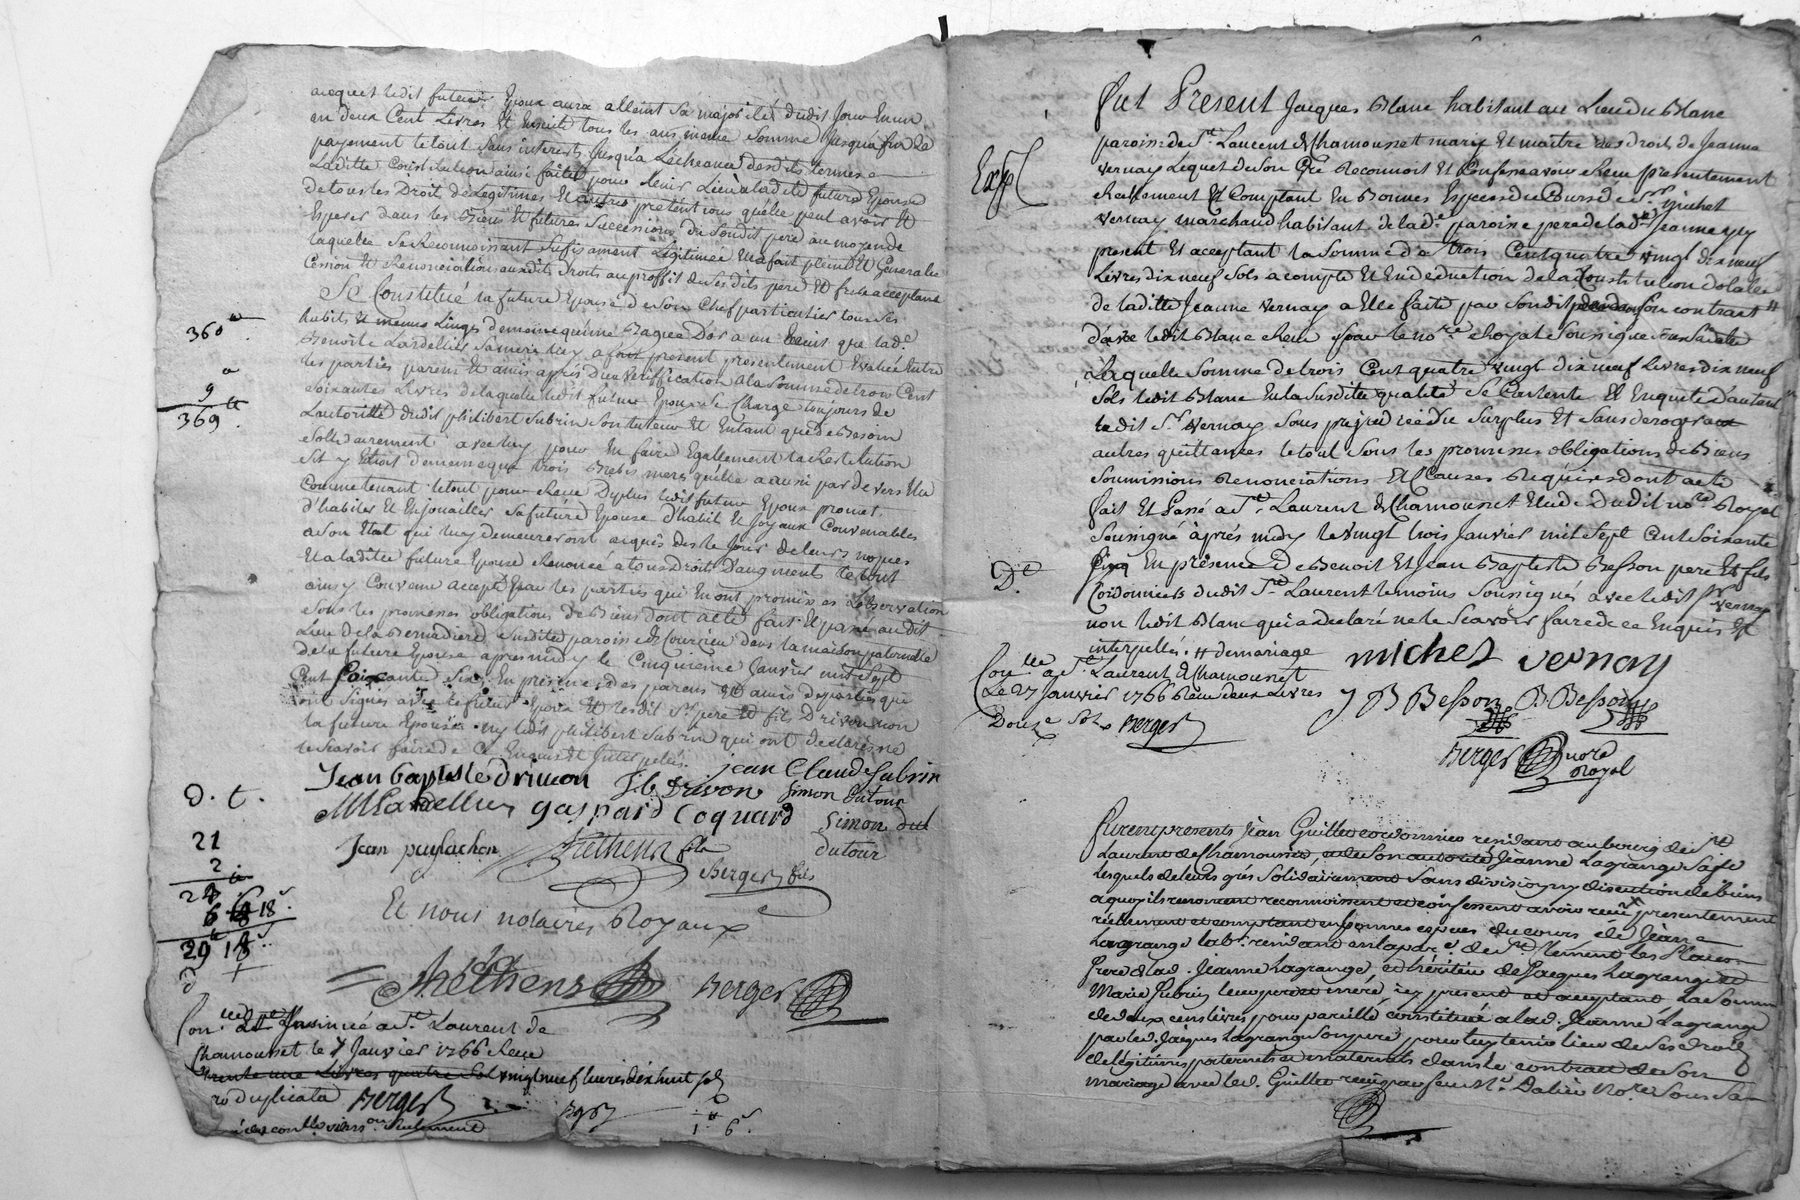 auquel ledit futeur Epoux aura atteint sa majorité dudit Jour En un
en deux Cent Livres Et Ensuite tous les ans meme Somme Jusquá fin de
payement le tout Sans interests Jusqu'a Lécheance desdits termes
Laditte Constitution ainsi faitte pour tenir Lieu a ladite future Epouse
de tous les Droit de Legitimes Et autres pretentions quélle peut avoir Et
Esperer dans les Biens Et futures Successions du Sondit pere au moyen de
laquelle Se Reconnoissant Sufisament Légitimée Elle fait pleine Et Generalle
Cession Et Renonciation ausdits droits au proffit de Ses dits pere Et frere acceptans
Se Constitué la future Epouse de son Chef particulier tous ses
habits Et menus Linges de meme qu'une Bague D'or a un que lad.e
Benoite Lardellier Sa mere luy a fait present presentement Evaluée Entre
les parties parens Et amis après due veriffication a la Somme de trois Cent
soixantes Livres de laquelle ledit futur Epoux Se Charge toujours de
L'autoritté dudit philibert Subrin Son tuteur Et Entant que de Besoin
Solidairement avec luy pour En faire Egallement la Restitution
Sil y Echoit de meme que trois Brebis meres quélle a aussi par devers Elle
le tout pour Reçue Deplus ledit futur Epoux promet
d'habiller Et Enjouailler Sa future Epouse d'habit Et Joyaux Convenables
a Son Etat qui luy demeureront acquis des le Jour de leurs nopces
Et a ladite future Epouse Renoncé a tous droits D'augments le tout
ainsy Convenu accepté par les parties qui En ont promis Lobservation
Sous les promesses obligations de Biens dont acte fait Et passé audit
Lieu de la Bernadiere Susdite paroisse de Courzieu dans la maison paternelle
de la future Epouse apres midy le Cinquieme Janvier mil Sept
Cent Soixante Six En presence des parens Et amis des parties qui
ont Signés avec le futur Epoux Et lesdit Srs pere Et fils Drivon non
la future Epouse ny ledit philibert Subrin qui ont declarés ne
le Scavoir faire de Ce Enquis Et Interpellés
360 tt
9 tt
369 tt
Jean baptiste drivon J. B. Drivon jean Claude Subrin
M Lardellier gaspard Coquard Simon Dutour
Jean puylachon Jhethens fils Simon dut
dutour
Berger fils
D. t.
21
2
6 18 s
29 tt 18 s
Et nous notaires Royaux
Jhéthens Berger
Con.lé Et Insinué a St. Laurent de
Chamousset le 7 Janvier 1766 Reçu
trente une Livres quatre Sol vingt neuf livres dix huit sols
ro duplicata Berger
1 tt 6 s
Exp.
Fut Present Jacques Blanc habitant au Lieu du Blanc
paroisse de St. Laurent de Chamousset mary Et maitre des Droit de Jeanne
vernay Lequel de Son Gré Reconnoit Et Confesse avoir Reçu presentement
Reellement Et Comptant En Bonnes Especes du Cours de Sr. Michel
Vernay marchand habitant de lad.e paroisse pere de lad.e Jeanne icy
present Et acceptant la Somme de trois Cent quatre vingt dix neuf
Livres dix neuf Sols a compte Et En deduction de la Constitution dotale
de laditte Jeanne vernay a Elle faite par Sondit pere dans Son contract #
d'avec ledit Blanc Reçu par le no.re Royal Soussigné En Sa datte
Laquelle Somme de trois Cent quatre vingt dix neuf Livres dix neuf
Sols ledit Blanc En la Susditte qualité Se Contente Et En quitte d'autant
ledit Sr. Vernay Sous prejudice du Surplus Et Sans deroger aux
autres quittances le tout Sous les promesses obligations de Biens
Soumissions Renonciations Et Clauses Requises dont acte
fait Et Passé a St. Laurent de Chamousset Etude dudit no.re Royal
Soussigné aprés midy le vingt trois Janvier mil Sept Cent Soixante
Six En presence De Benoit Et Jean Baptiste Besson pere Et fils
Cordonniers dudit St. Laurent temoins Soussignés avec ledit Sr. vernay
non ledit Blanc qui a declaré ne le Scavoir faire de ce Enquis Et
interpellés. # de mariage
D.e
michel vernay
J B Besson B Besson
Berger nore
Royal
Con.lé a St. Laurent de Chamousset
Le 27 Janvier 1766 Reçu deux Livres
Douze Sols Berger
Furent presents Jean Guillot cordonnier residant au bourg de St
Laurent de Chamousset, et de Son autorité Jeanne Lagrange Sa fe
Lesquels de leurs gres Solidairement Sans division ny discution de biens
a quoy ils renoncent reconnoissent et confessent avoir reçu presentement
reellement et comptant en bonnes especes du cours de Jean
Lagrange lab.r residant en la par.e de St. Clement les Places
frere de lad. Jeanne Lagrange, et héritier de Jacques Lagrange et
Marie Subrin leurs pere et mere icy present et acceptant La Somme
de deux cens livres pour pareille constituée a lad. Jeanne Lagrange
par led. Jacques Lagrange Son pere pour luy tenir lieu de Ses droits
de légitimes paternels et maternels dans le contract de Son
mariage avec led. Guillot reçu par feu Me. Dalin No.re Sous Sa